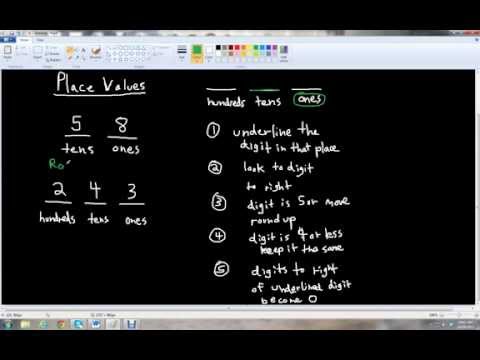 Place Values
5 8
tens ones
Ro
2 4 3
hundreds tens ones
hundreds tens ones
1 underline the
digit in that place
2 look to digit
to right
3 digit is 5 or move
round up
4 digit is 4 or less
keep it the same
5 digits to right
of underlined digit
become 0